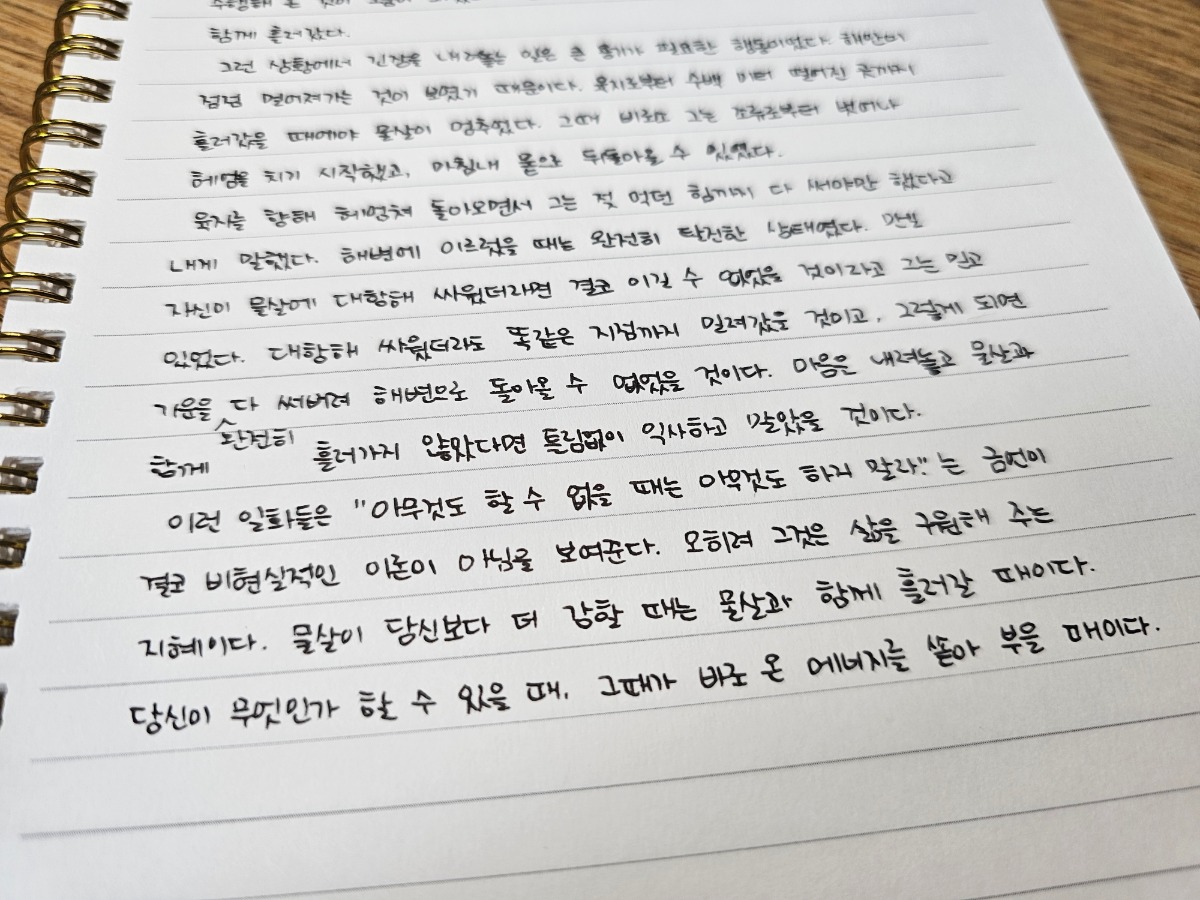 함께 흘러갔다.
그런 상황에서 긴장을 내려놓는 것은 큰 용기가 필요한 행동이었다. 해안이
점점 멀어져가는 것이 보였기 때문이다. 육지로부터 수백 미터 떨어진 곳까지
흘러갔을 때에야 물살이 멈추었다. 그때 비로소 그는 조류로부터 벗어나
헤엄을 치기 시작했고, 마침내 뭍으로 되돌아올 수 있었다.
육지를 향해 헤엄쳐 돌아오면서 그는 젖 먹던 힘까지 다 써야만 했다고
내게 말했다. 해변에 이르렀을 때는 완전히 탈진한 상태였다. 만일
자신이 물살에 대항해 싸웠더라면 결코 이길 수 없었을 것이라고 그는 믿고
있었다. 대항해 싸웠더라도 똑같은 지점까지 밀려갔을 것이고, 그렇게 되면
기운을 다 써버려 해변으로 돌아올 수 없었을 것이다. 마음은 내려놓고 물살과
함께 완전히 흘러가지 않았다면 틀림없이 익사하고 말았을 것이다.
이런 일화들은 "아무것도 할 수 없을 때는 아무것도 하지 말라."는 금언이
결코 비현실적인 이론이 아님을 보여준다. 오히려 그것은 삶을 구원해 주는
지혜이다. 물살이 당신보다 더 강할 때는 물살과 함께 흘러갈 때이다.
당신이 무엇인가 할 수 있을 때, 그때가 바로 온 에너지를 쏟아 부을 때이다.